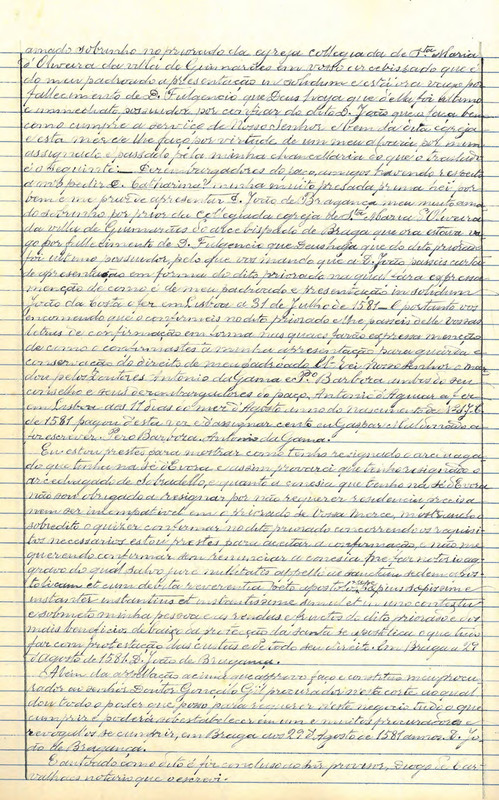 amado sobrinho no priorado da egreja collegiada de Sta Maria
d'Oliveira da villa de Guimarães em vosso arcebispado que é
do meu padroado e apresentação in solidum e está ora vago por
fallecimento de D. Fulgencio que Deus haja que d'elle foi ultimo
e immediato possuidor por confiar do dito D. João que o fará bem
como cumpre a serviço de Nosso Senhor e bem da dita egreja
e esta mercê lhe faço por virtude de um meu alvará por mim
assignado e passado pela minha chancellaria do qual o traslado
é o seguinte: Desembargadores do paço, amigos havendo respeito
a m'o pedir D. Catharina minha muito presada prima hei por
bem e me praz de apresentar D. João de Bragança meu muito ama-
do sobrinho por prior da collegiada egreja de Sta Maria d'Oliveira
da villa de Guimarães do arcebispado de Braga que ora estava va-
go por fallecimento de D. Fulgencio que Deus haja que do dito priorado
foi ultimo possuidor, pelo que vos mando que ao D. João passeis carta
de apresentação em forma do dito priorado na qual fará expressa
menção de como é de meu padroado e apresentação in solidum
João da Costa a fez em Lisboa a 31 de Julho de 1581 E portanto vos
encomendo que o confirmeis no dito priorado e lhe passeis d'elle vossas
letras de confirmação em forma nas quaes farão expressa menção
de como o confirmastes á minha apresentação para guarda e
conservação do direito de meu padroado. El-Rei Nosso Senhor o man-
dou pelos Doutores Antonio da Gama e Po Barbosa ambos do seu
conselho e seus desembargadores do paço, Antonio d'Aguiar a fez
em Lisboa aos 1º dias do mez d'Agosto anno do nascimento de
de 1581 pagou d'esta nez e d'assignar cento eu Gaspar Maldonado a
fiz escrever. Pero Barbosa. Antonio da Gama.
Eu estou prestes para mostrar como tenho resignado o arcediaga-
do que tenho na Sé d'Evora e assim provarei que tenho resignado o
arcediagado de Sobradello, e quanto a conesia que tenho na Sé d'Evora
não sou obrigado a resignar por não requerer residencia precisa
nem ser incompativel com o Priorado se Vossa Mercê, mostrando o
sobredito o quizer confirmar no dito priorado concorrendo os requisi-
tos necessarios estou prestes para aceitar a confirmação, e não me
querendo confirmar sem renunciar a conesia prefar notorio ag-
gravo do qual salvo jure nullitatis appello ad sanctam sedem apos-
tolicam et cum debita reverentia peto apostolos sæpe sæpius sæpissime
instanter instantius et instantissime simul et in uno contextu
e submeto minha pessoa e as rendas e fructos do dito priorado e dos
mais beneficios debaixo da protecção da santa sé apostolica o que tudo
faz com protestação das custas e de todo seu direito. Em Braga a 29
d'Agosto de 1581. D. João de Bragança.
Além da appellação acima que approvo faço e constituo meu procu-
rador ao senhor Doutor Gonçalo Gil procurador nesta corte ao qual
dou todo o poder que posso para requerer n'este negocio tudo o que
cumprir e poderá sobestabelecer em um e muitos procuradores e
revogal-os se cumprir, em Braga aos 29 d'Agosto de 1581 annos. D. Jo-
ão de Bragança.
E autoado como dito é foi concluso ao snr provisor, Diogo de Car-
valho notario que o escrevi.